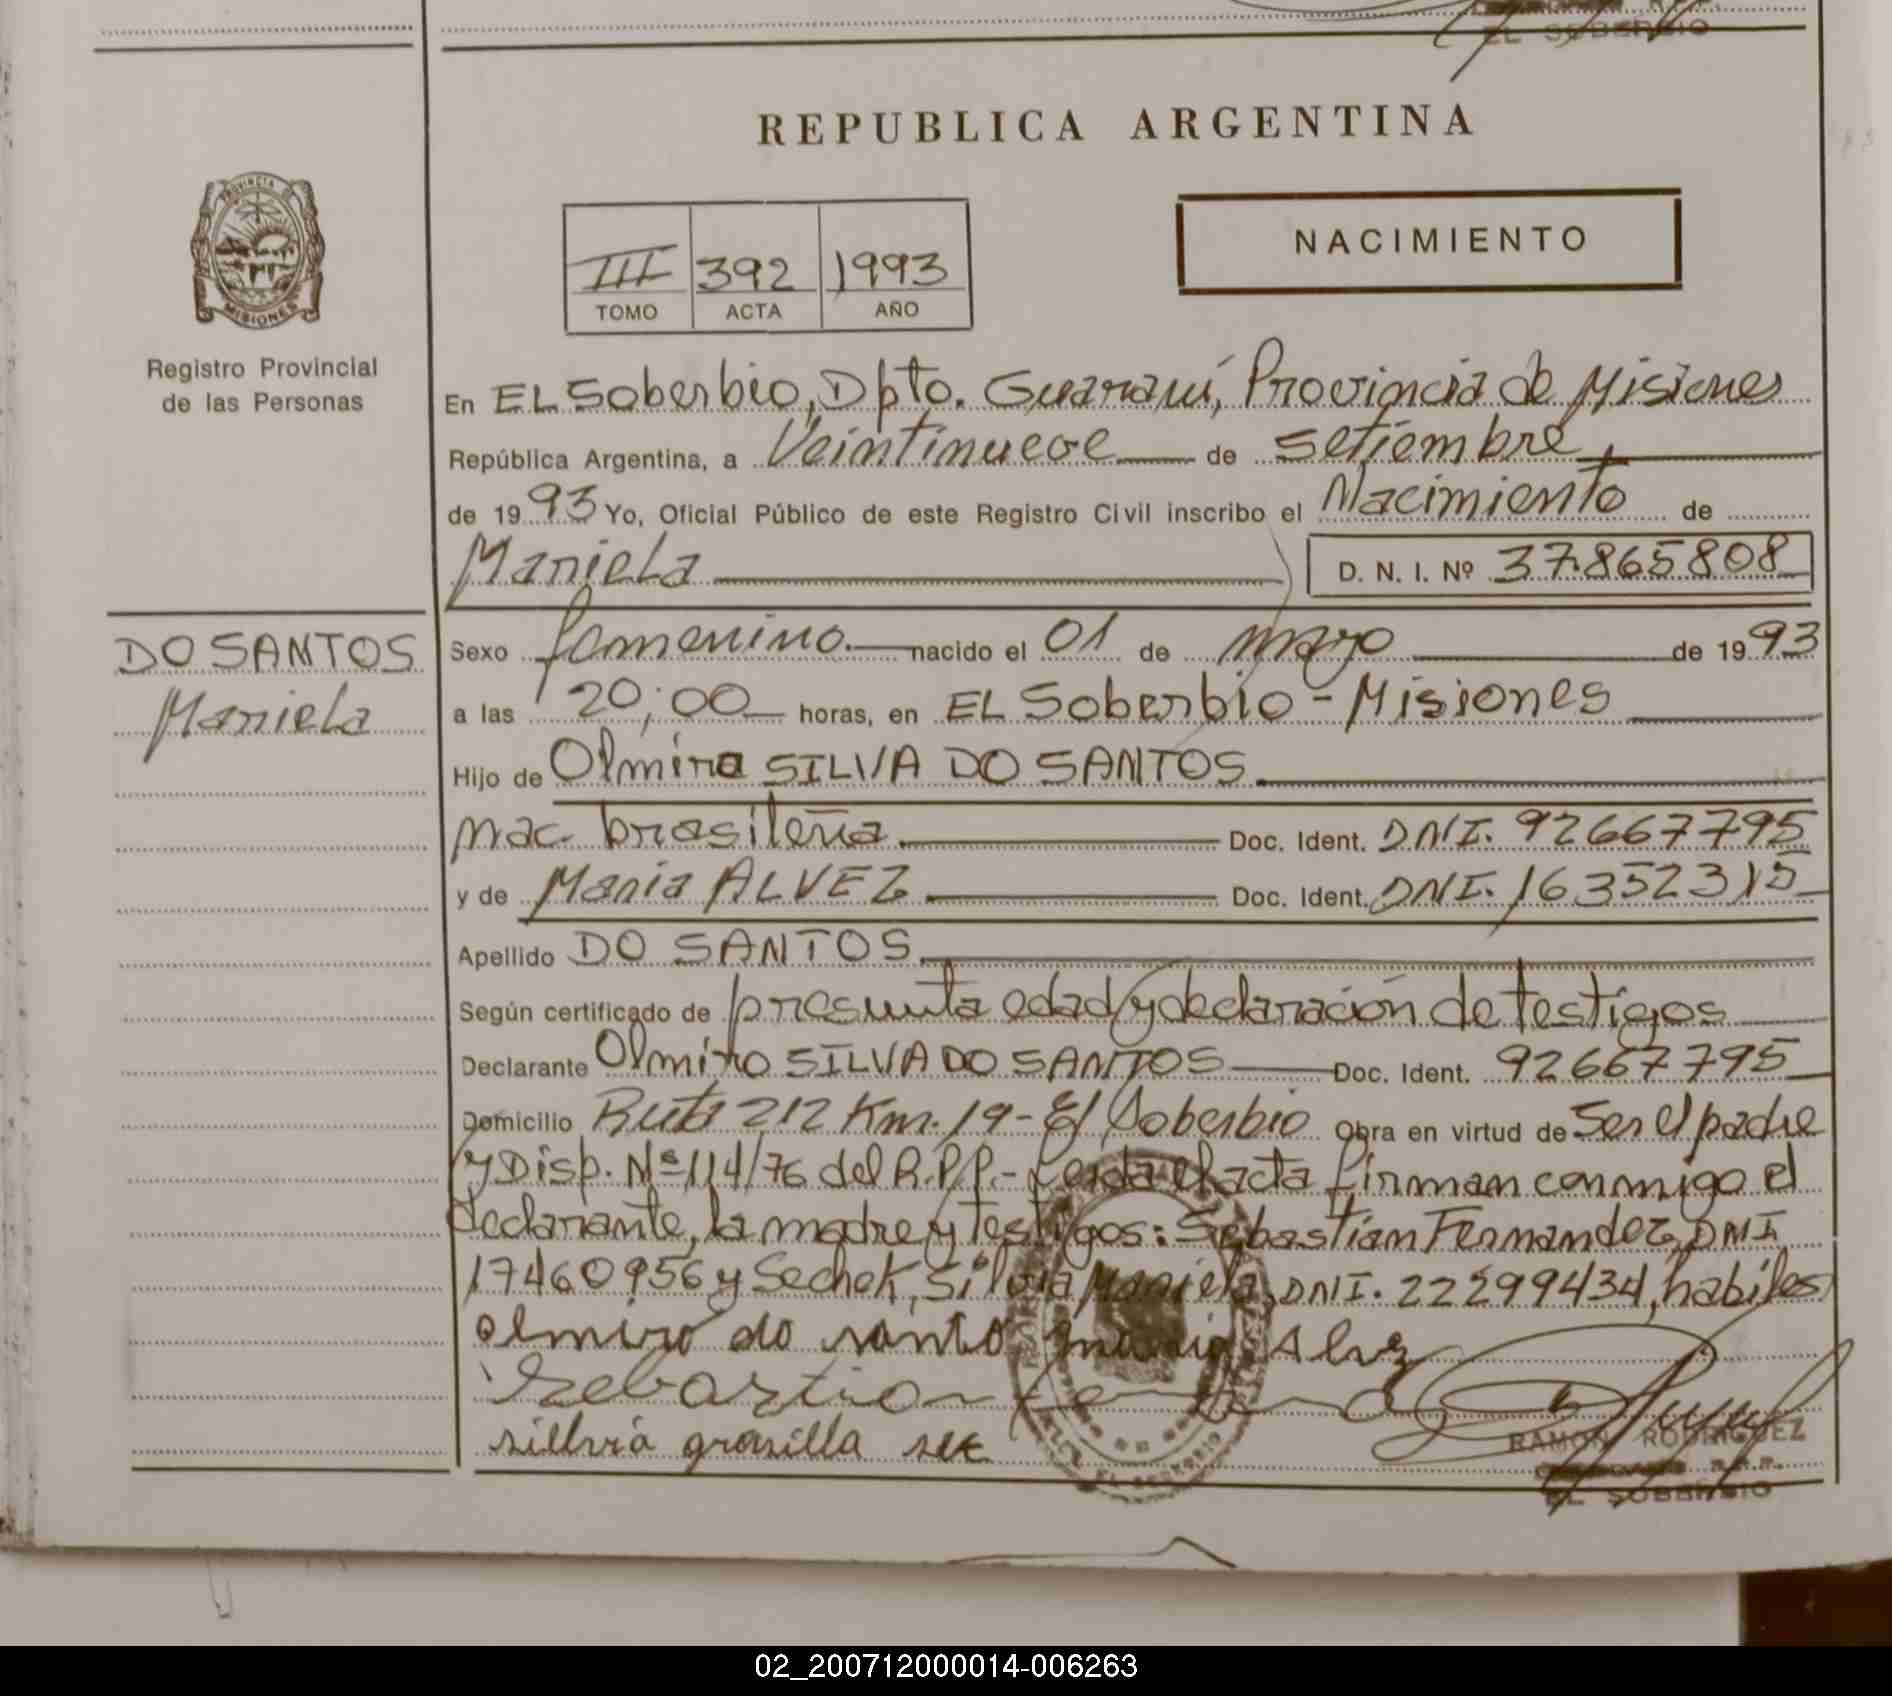 REPUBLICA ARGENTINA
PROVINCIA DE
MISIONES
Registro Provincial
de las Personas
III 392 1993
TOMO ACTA AÑO
NACIMIENTO
En EL Soberbio, Dpto. Guaraní, Provincia de Misiones
República Argentina, a Veintinueve de setiembre,
de 1993 Yo, Oficial Público de este Registro Civil inscribo el Nacimiento de
Mariela D. N. I. Nº 37.865808
DO SANTOS
Mariela
Sexo femenino. nacido el 01 de mayo de 1993
a las 20;00 horas, en EL Soberbio - Misiones
Hijo de Olmiro SILVA DO SANTOS
nac. brasileña. Doc. Ident. DNI. 92667795
y de Maria ALVEZ Doc. Ident. DNI. 16352315
Apellido DO SANTOS
Según certificado de presunta edad y declaración de testigos
Declarante Olmiro SILVA DO SANTOS Doc. Ident. 92667795
Domicilio Ruta 212 Km. 19 - El Soberbio Obra en virtud de Ser el padre
y Disp. Nº 114/76 del R.P.P.- Leida el acta firman conmigo el
declarante, la madre y testigos: Sebastian Fernandez, DNI
17460956 y Sechok, Silvia Mariela, DNI. 22299434, habiles
olmiro do santo maria Alvez
Sebastian
sillvia grasilla
RAMON RODRIGUEZ
EL SOBERBIO
02_200712000014-006263